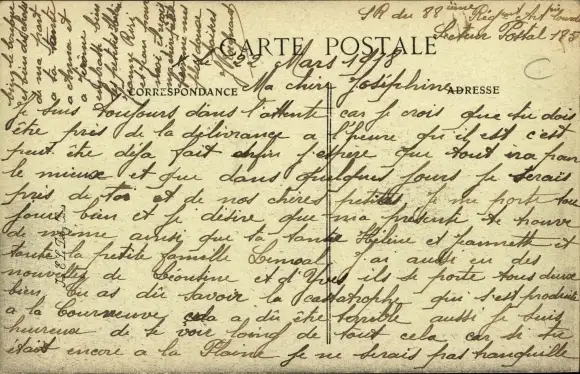 SR du 88ième Régt Art Lourde
Secteur Postal 185
CARTE POSTALE
le 22 Mars 1918
CORRESPONDANCE
ADRESSE
Ma chère Joséphine
Je suis toujours dans l'attente car je crois que tu dois
être près de la délivrance a l'heure qu'il est c'est
peut être déja fait enfin j'espère que tout ira pour
le mieux et que dans quelques jours je serais
près de toi et de nos chères petites Je me porte tou
jours bien et je désire que ma présente te trouve
de même ainsi que ta tante Hélène et Jeannette et
toute la petite famille Limoal J'ai aussi eu des
nouvelles de Léontine et d'Yves ils se porte tous deux
bien Tu as dû savoir la catastrophe qui s'est produite
a la Courneuve cela a dû être terrible aussi je suis
heureux de te voir loing de tout cela car si tu
était encore a la Plaine je ne serais pas tranquille